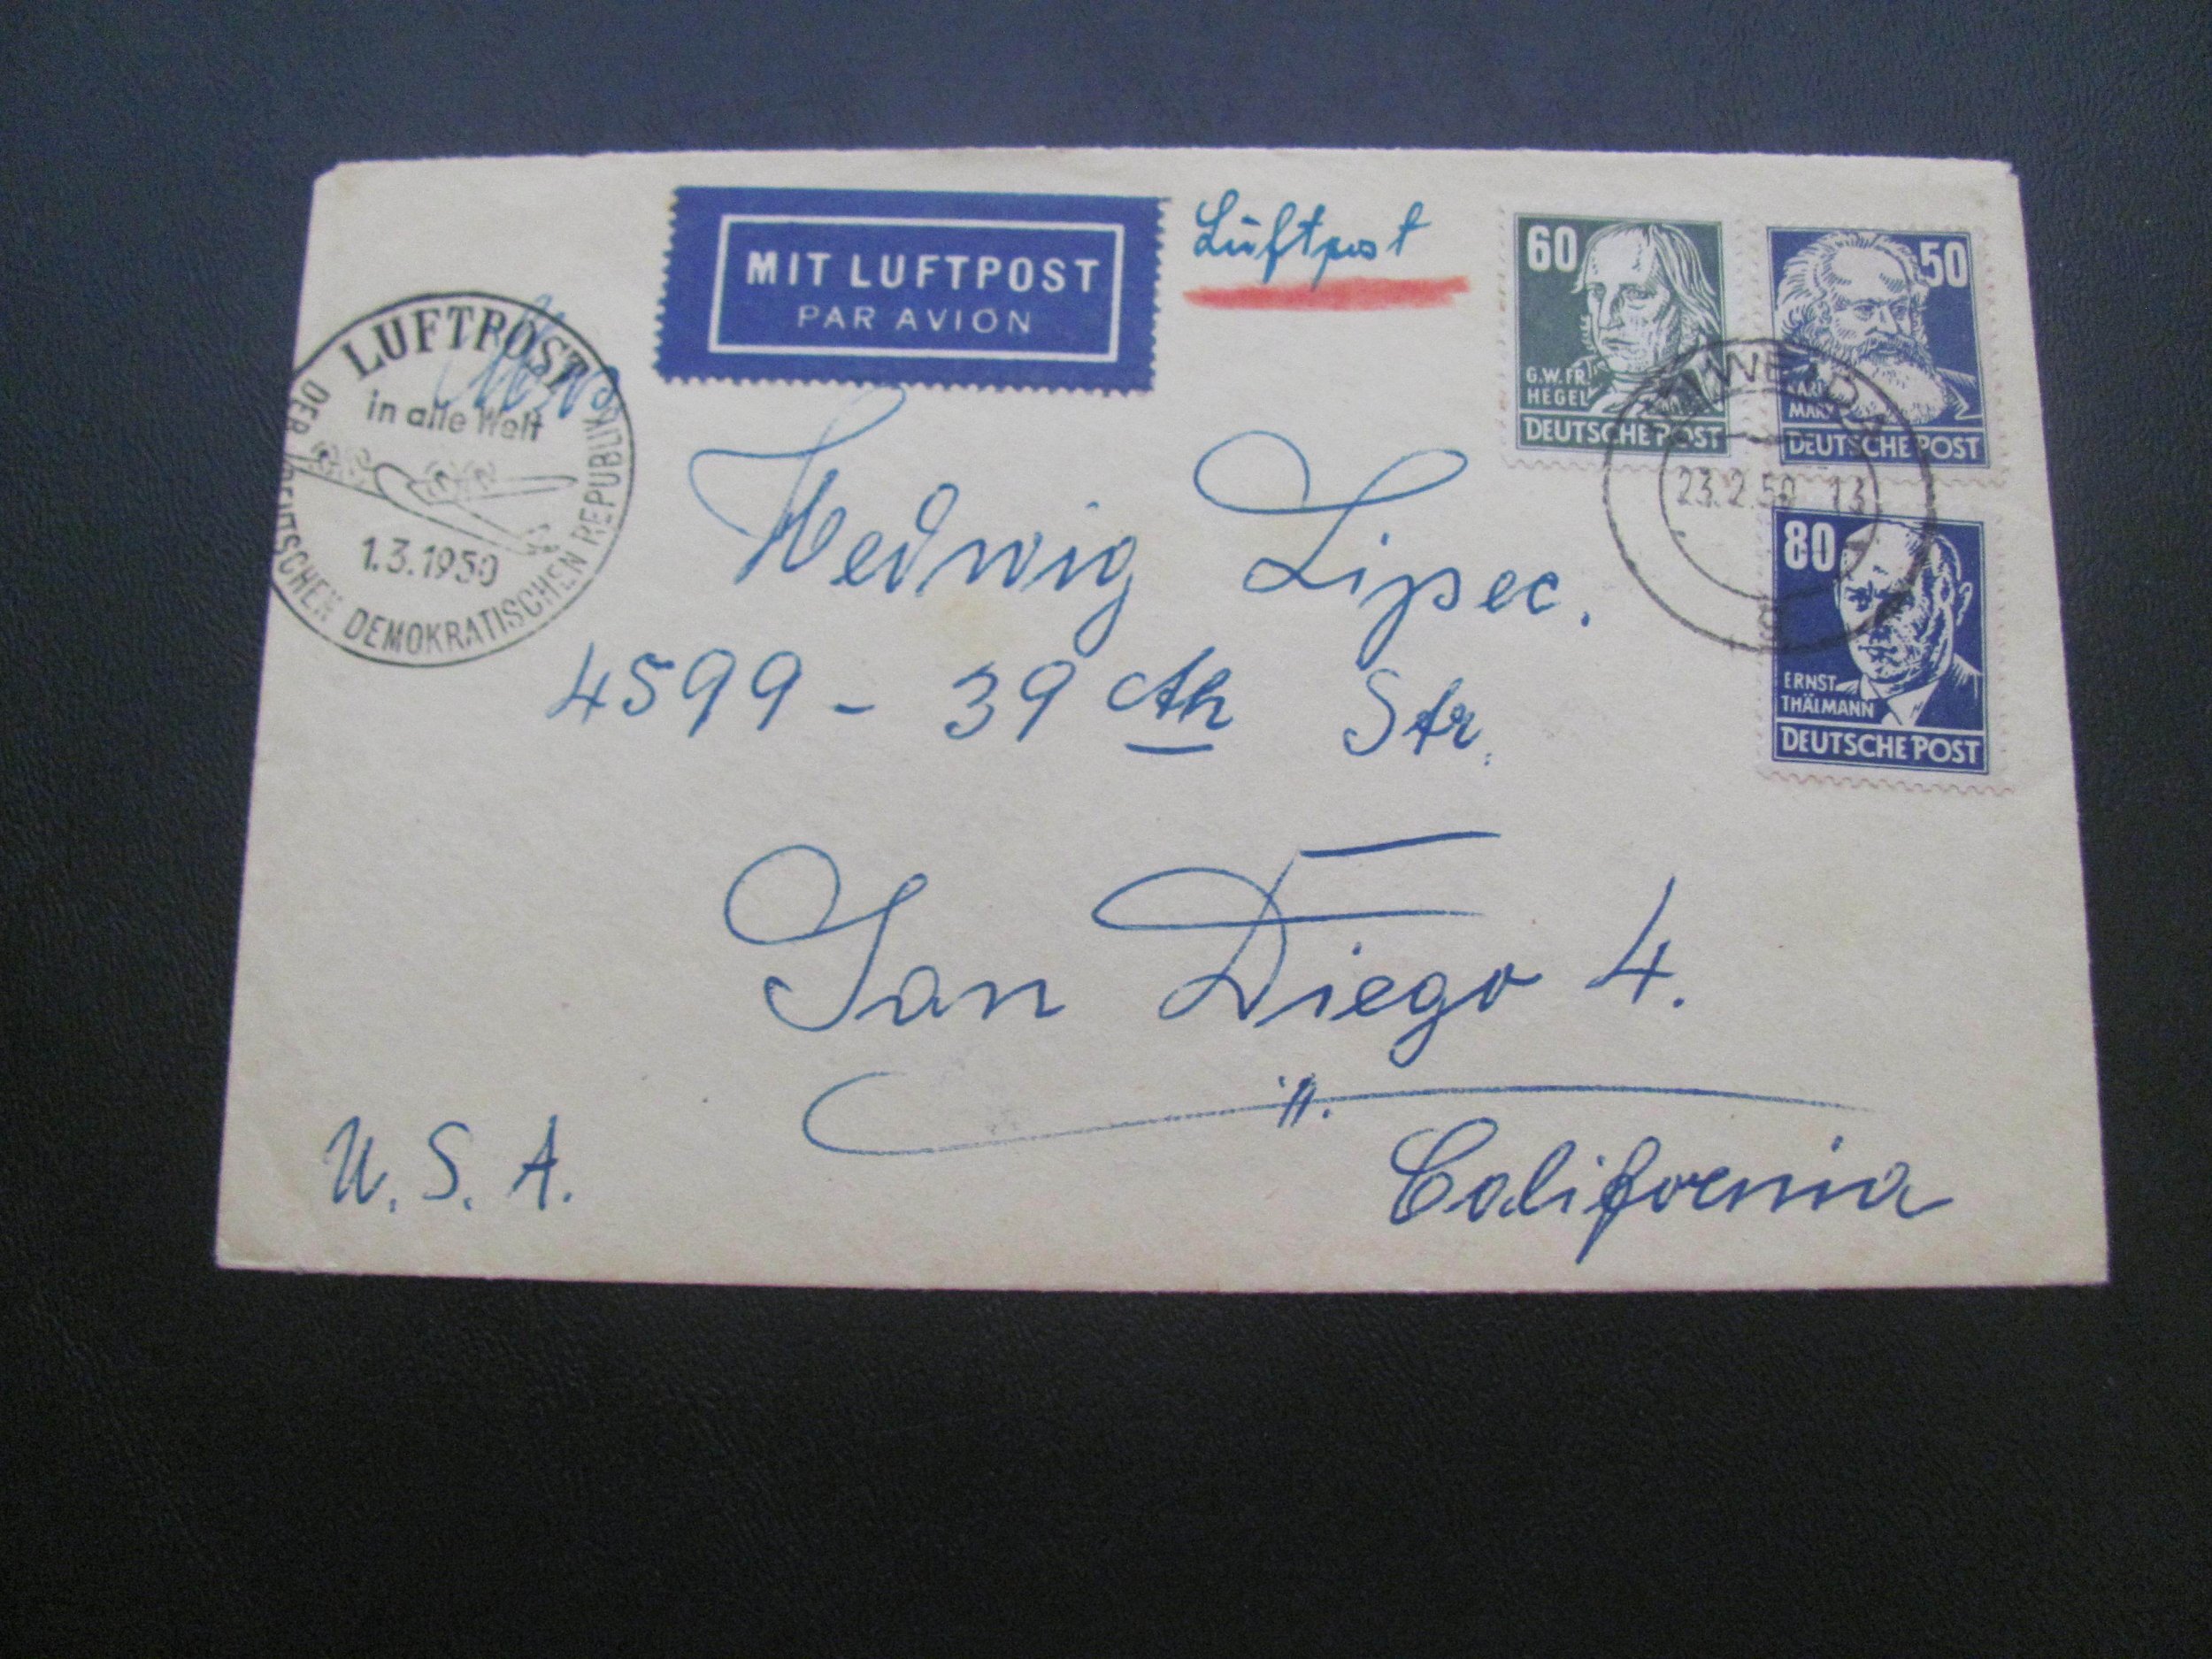 MIT LUFTPOST
PAR AVION
Luftpost
60
G.W.FR.
HEGEL
DEUTSCHE POST
50
KARL
MARX
DEUTSCHE POST
23.2.50 13
80
ERNST
THÄLMANN
DEUTSCHE POST
LUFTPOST
in alle Welt
1.3.1950
DER DEUTSCHEN DEMOKRATISCHEN REPUBLIK
Hedwig Lipsec.
4599 - 39 th Str.
San Diego 4.
California
U.S.A.